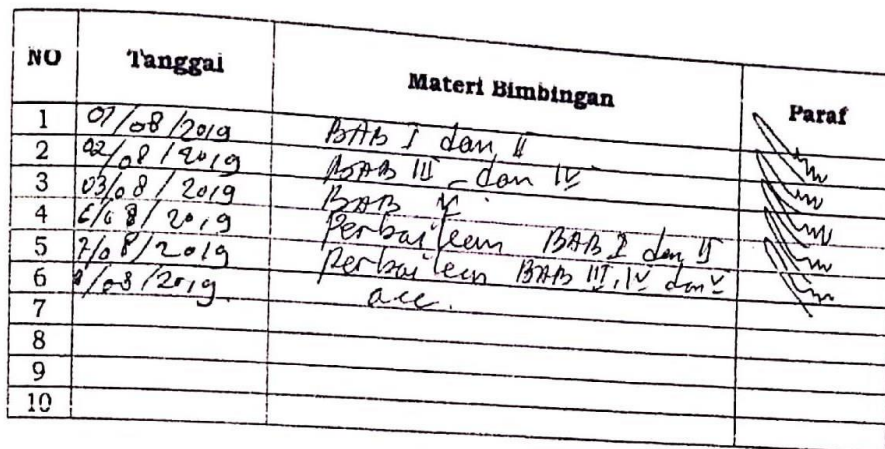 NO Tanggal Materi Bimbingan Paraf
1 01/08/2019 BAB I dan II
2 02/08/2019 BAB III dan IV
3 03/08/2019 BAB V
4 6/08/2019 Perbaikan BAB I dan II
5 7/08/2019 Perbaikan BAB III, IV dan V
6 /08/2019 acc.
7
8
9
10